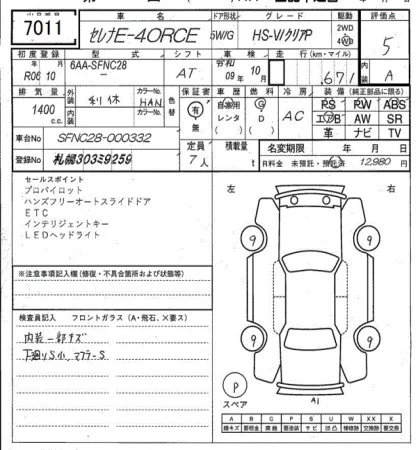 7011
車名
セレナE-4ORCE
ドア形状
5WIG
グレード
HS-VハクリアP
駆動
2WD
4WD
評価点
5
初度登録
年 月
R06 10
型式
6AA-SFNC28
シフト
AT
車検
令和
09年 10月
走行(km・マイル)
.671
内装
A
排気量
1400
c.c.
外装
利休
カラーNo.
HAN
内装
カラーNo.
色替
保証書
有
無
車歴
自家用
レンタ
燃料
G
D
冷房
AC
装備(純正部品に限る)
PS PW ABS
エアB AW SR
革 ナビ TV
車台No
SFNC28-000332
登録No
札幌303ミ9259
定員
7人
積載量
t
名変期限 年 月 日
R料金 未預託・預託済 12,980 円
セールスポイント
プロパイロット
ハンズフリーオートスライドドア
ETC
インテリジェントキー
LEDヘッドライト
※注意事項記入欄(修復・不具合箇所および状態等)
検査員記入 フロントガラス(A・飛石、X要ス)
内装一部キズ
下廻りS小、マフラーS
左
右
9
9
9
9
P
スペア
A1
A B C P S U W X XX